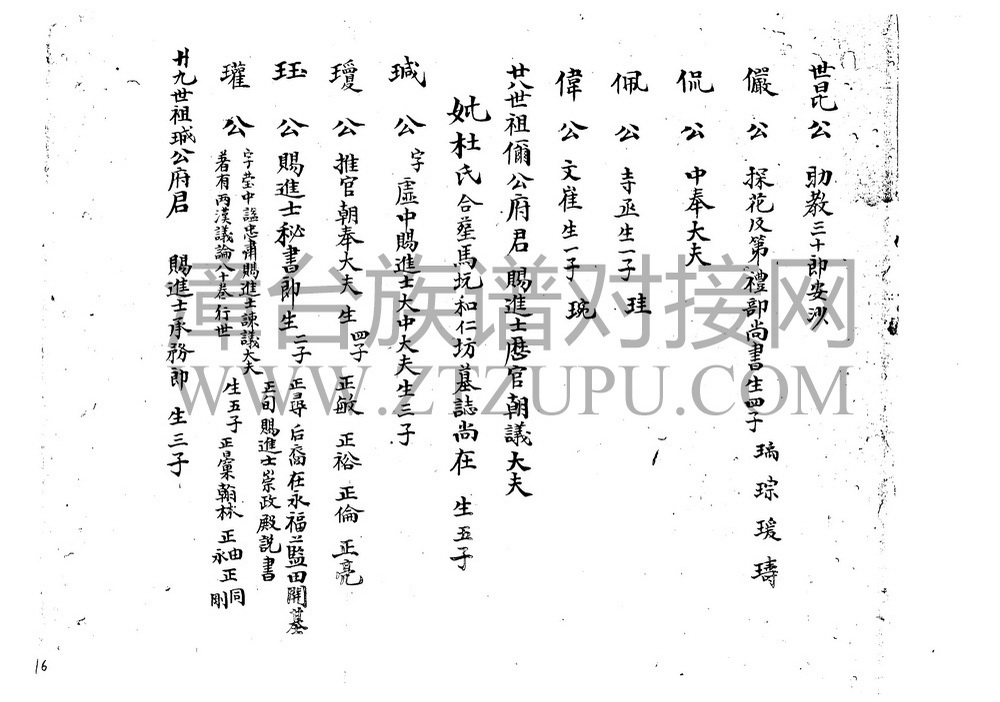 世昆公 助教三十郎安沙
儼公 探花及第禮部尚書生四子 瑞 琮 瑗 璹
侃公 中奉大夫
佩公 寺丞生一子 珪
偉公 文崔生一子 琬
廿八世祖儞公府君 賜進士歷官朝議大夫
妣杜氏合塟馬坑和仁坊墓誌尚在 生五子
瑊公 字虛中賜進士大中大夫生三子
瓊公 推官朝奉大夫生四子 正敏 正裕 正倫 正亮
珏公 賜進士秘書郎生二子 正尋后裔在永福二監田開墓
正旬賜進士崇政殿説書
瓘公 字瑩中諡忠肅賜進士諫議大夫
著有兩漢議論八十卷行世 生五子 正彙翰林 正由 正同
正永 剛
廿九世祖瑊公府君 賜進士承務郎 生三子
16
章台族谱对接网
WWW.ZTZUPU.COM